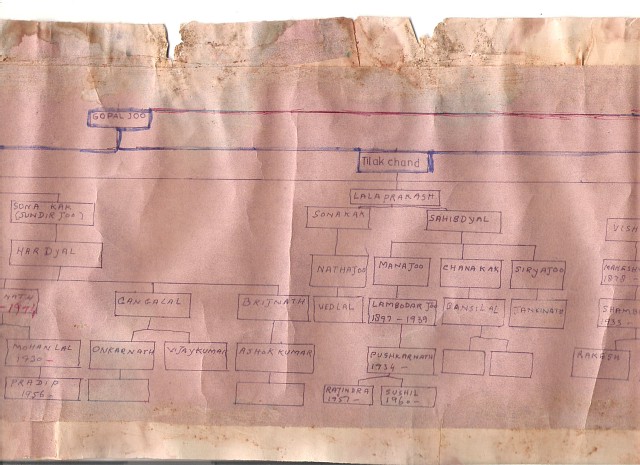 GOPAL JOO
Tilak chand
LALAPRAKASH
SONA KAK
(SUNDIR JOO)
SONAKAK
SAHIBDYAL
VISH
HARDYAL
NATHAJOO
MANAJOO
CHANAKAK
SIRYAJOO
1878 -
NATH
-1974
GANGALAL
BRIJNATH
VEDLAL
LAMBODAR JOO
1897 - 1939
BANSILAL
JANKINATH
SHAMBU
1935 -
MOHANLAL
1930 -
ONKARNATH
VIJAYKUMAR
ASHOK KUMAR
PUSHKARNATH
1934 -
RAKESH
PRADIP
1956 -
RAJINDRA
1957 -
SUSHIL
1960 -